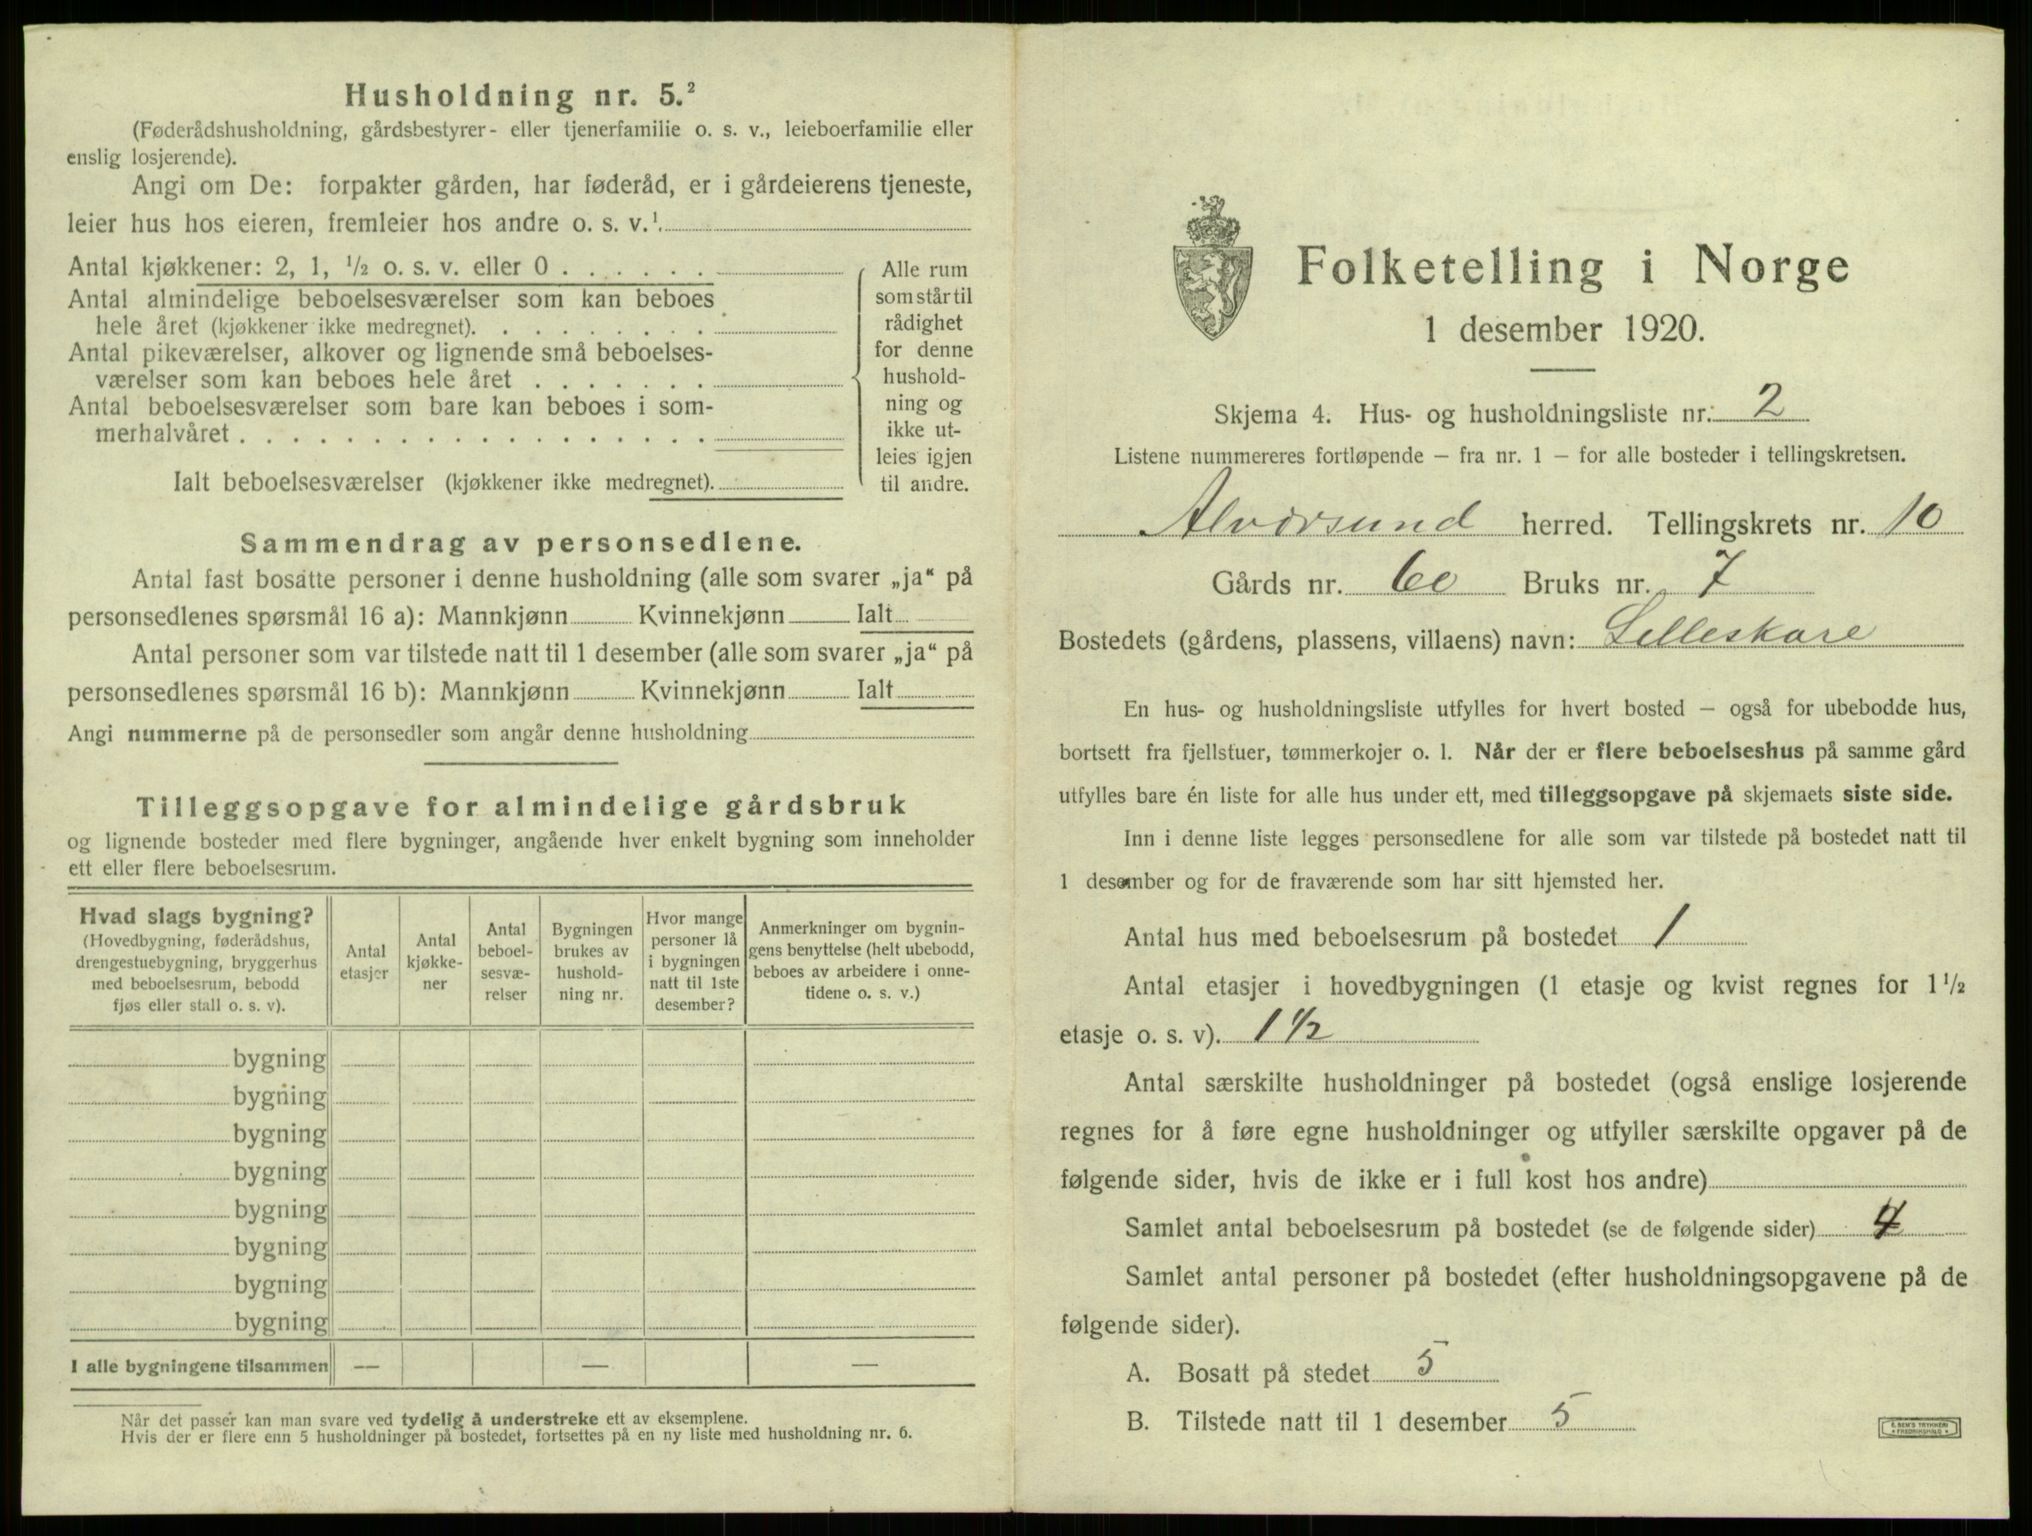 Husholdning nr. 5.²
(Føderådshusholdning, gårdsbestyrer- eller tjenerfamilie o. s. v., leieboerfamilie eller
enslig losjerende).
Angi om De: forpakter gården, har føderåd, er i gårdeierens tjeneste,
leier hus hos eieren, fremleier hos andre o. s. v.¹
Antal kjøkkener: 2, 1, ½ o. s. v. eller 0 . . . . . .
Antal almindelige beboelsesværelser som kan beboes
hele året (kjøkkener ikke medregnet). . . . . . . . .
Antal pikeværelser, alkover og lignende små beboelses-
værelser som kan beboes hele året . . . . . . .
Antal beboelsesværelser som bare kan beboes i som-
merhalvåret . . . . . . . . . . . . . . . . . .
Ialt beboelsesværelser (kjøkkener ikke medregnet).
Alle rum
som står til
rådighet
for denne
hushold-
ning og
ikke ut-
leies igjen
til andre.
Sammendrag av personsedlene.
Antal fast bosatte personer i denne husholdning (alle som svarer „ja“ på
personsedlenes spørsmål 16 a): Mannkjønn Kvinnekjønn Ialt
Antal personer som var tilstede natt til 1 desember (alle som svarer „ja“ på
personsedlenes spørsmål 16 b): Mannkjønn Kvinnekjønn Ialt
Angi nummerne på de personsedler som angår denne husholdning
Tilleggsopgave for almindelige gårdsbruk
og lignende bosteder med flere bygninger, angående hver enkelt bygning som inneholder
ett eller flere beboelsesrum.
Hvad slags bygning?
(Hovedbygning, føderådshus,
drengestuebygning, bryggerhus
med beboelsesrum, bebodd
fjøs eller stall o. s. v).
Antal
etasjer
Antal
kjøkke-
ner
Antal
beboel-
sesvæ-
relser
Bygningen
brukes av
hushold-
ning nr.
Hvor mange
personer lå
i bygningen
natt til 1ste
desember?
Anmerkninger om bygnin-
gens benyttelse (helt ubebodd,
beboes av arbeidere i onne-
tidene o. s. v.)
bygning
bygning
bygning
bygning
bygning
bygning
bygning
bygning
I alle bygningene tilsammen — — —
Når det passer kan man svare ved tydelig å understreke ett av eksemplene.
Hvis der er flere enn 5 husholdninger på bostedet, fortsettes på en ny liste med husholdning nr. 6.
Folketelling i Norge
1 desember 1920.
Skjema 4. Hus- og husholdningsliste nr. 2
Listene nummereres fortløpende – fra nr. 1 – for alle bosteder i tellingskretsen.
Alversund herred. Tellingskrets nr. 10
Gårds nr. 60 Bruks nr. 7
Bostedets (gårdens, plassens, villaens) navn: Lilleskare
En hus- og husholdningsliste utfylles for hvert bosted – også for ubebodde hus,
bortsett fra fjellstuer, tømmerkojer o. l. Når der er flere beboelseshus på samme gård
utfylles bare én liste for alle hus under ett, med tilleggsopgave på skjemaets siste side.
Inn i denne liste legges personsedlene for alle som var tilstede på bostedet natt til
1 desember og for de fraværende som har sitt hjemsted her.
Antal hus med beboelsesrum på bostedet 1
Antal etasjer i hovedbygningen (1 etasje og kvist regnes for 1½
etasje o. s. v). 1 ½
Antal særskilte husholdninger på bostedet (også enslige losjerende
regnes for å føre egne husholdninger og utfyller særskilte opgaver på de
følgende sider, hvis de ikke er i full kost hos andre)
Samlet antal beboelsesrum på bostedet (se de følgende sider) 4
Samlet antal personer på bostedet (efter husholdningsopgavene på de
følgende sider).
A. Bosatt på stedet 5
B. Tilstede natt til 1 desember 5
E. SEM'S TRYKKERI
FREDRIKSHALD